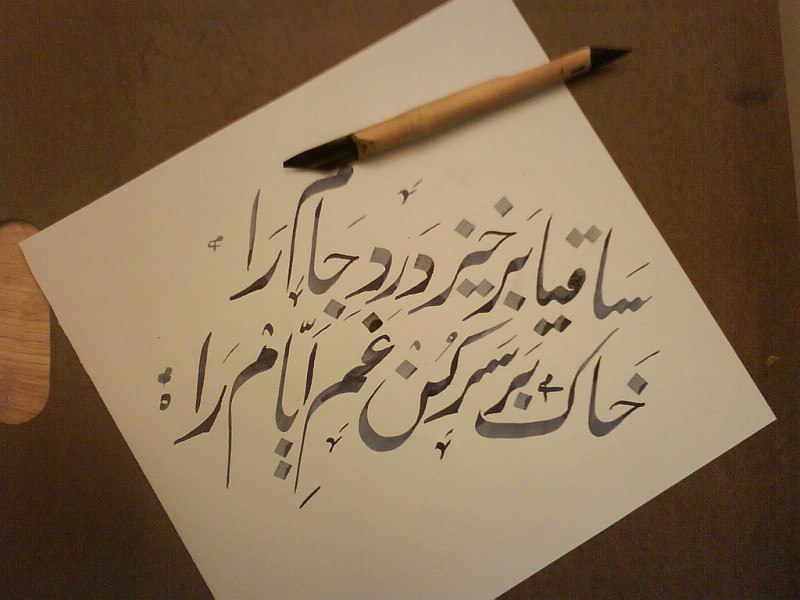 سَاقیا بَرخیز دَرِدِ جَام رَا
خَاک بَر سَر کُن غَمِ اَیّام رَا